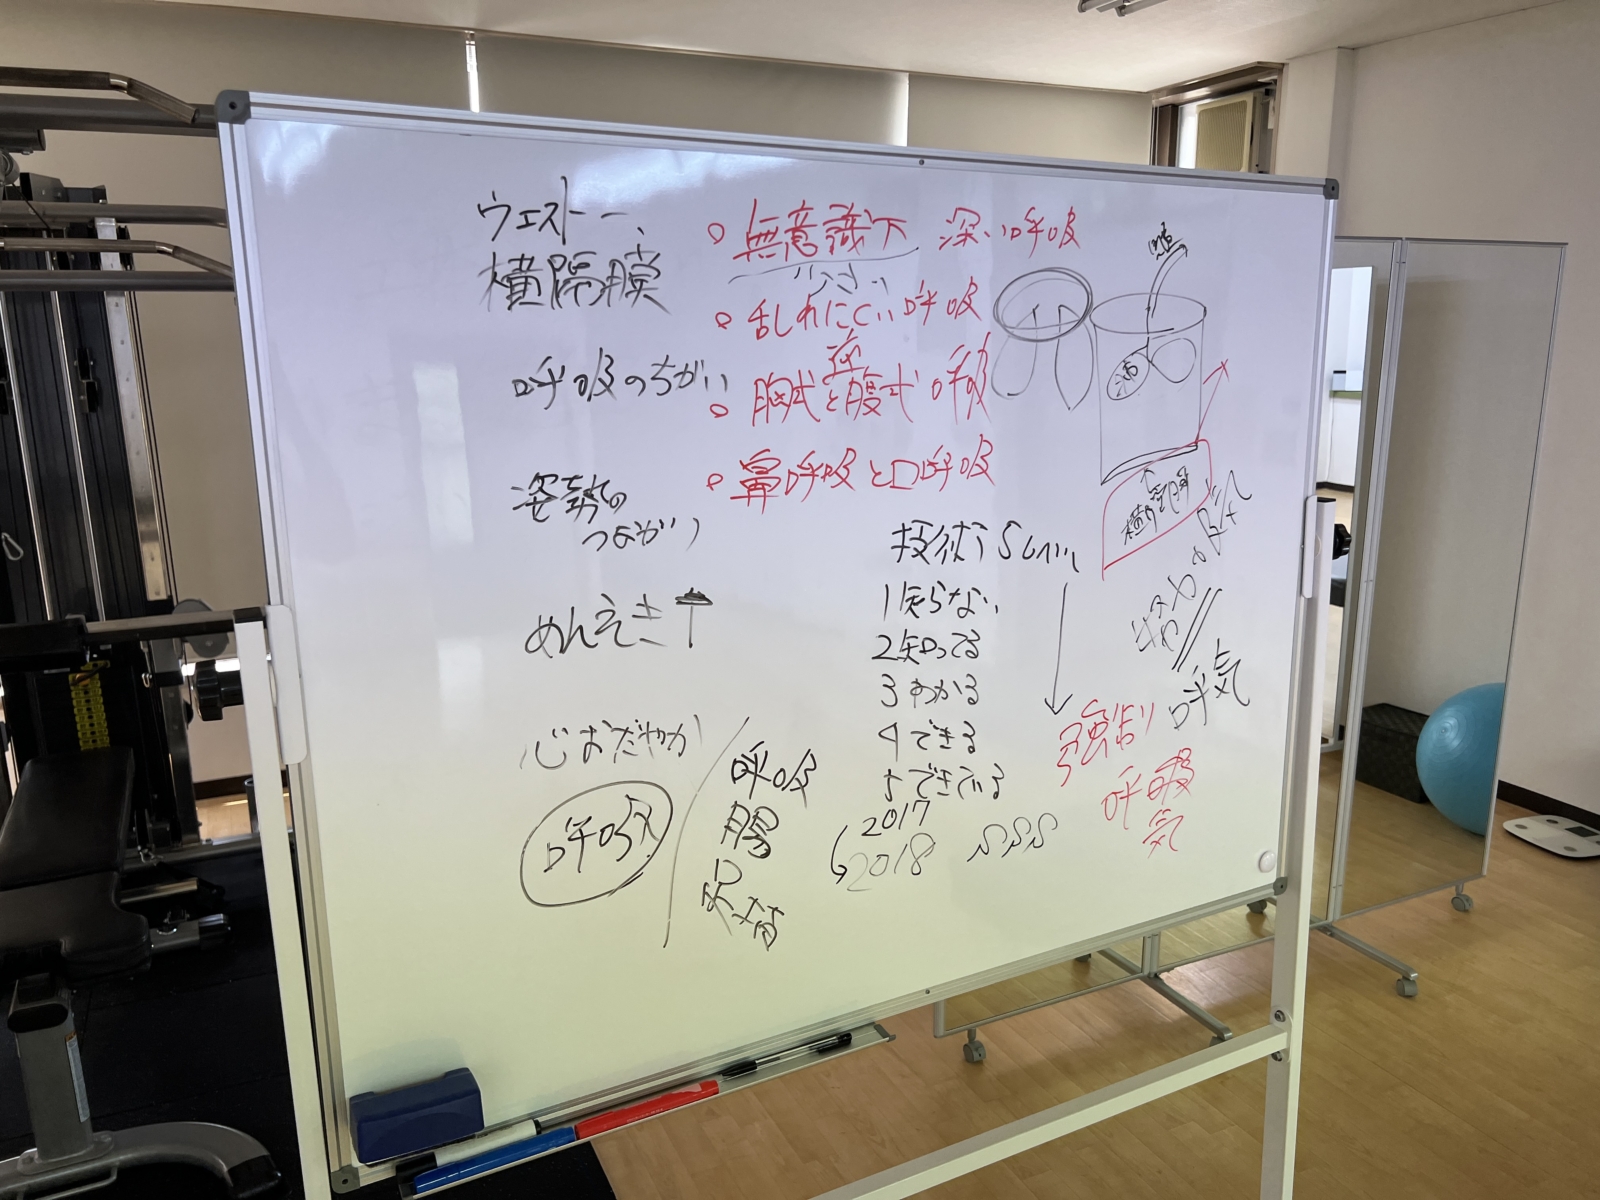 ウエストー、
横隔膜
呼吸のちがい
姿勢の
つながり
めんえき↑
心おだやか
呼吸
呼吸
腸
• 無意識下 深い呼吸
• 乱れにくい呼吸
逆
• 胸式と腹式呼吸
• 鼻呼吸と口呼吸
肺
横隔膜
技術 5
1 知らない
2 知ってる
3 わかる
4 できる
5 できている
2017
2018 SSS
呼気
強制
呼吸
気